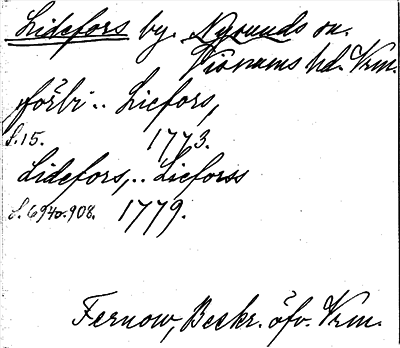 Lidefors by. Nysunds sn.
Visnums hd. Vrm.
förbi .. Liefors,
s. 15. 1773.
Lidefors, .. Lieforss
s. 694 o. 908. 1779.
Fernow, Beskr. öfv. Vrm.